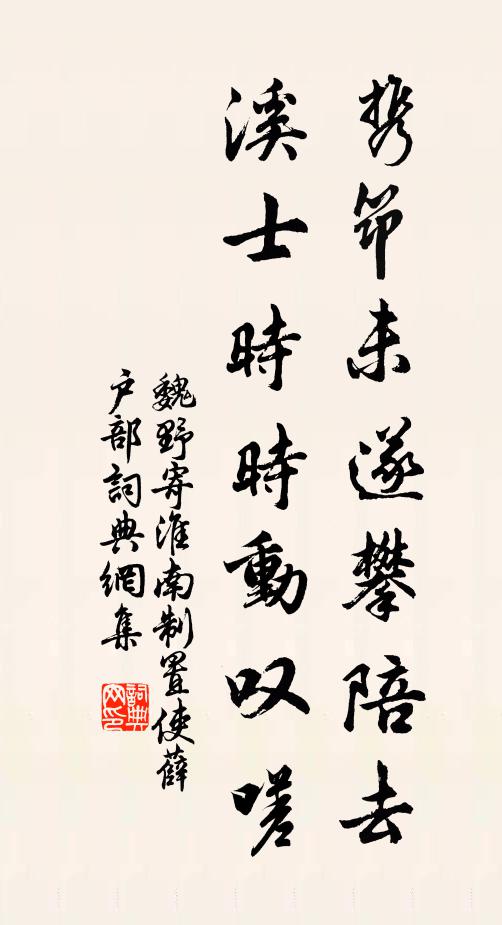 携筇未遂攀陪去
溪士時時動叹嗟
魏野寄淮南制置使薛
户部詞典網集
詞典网印